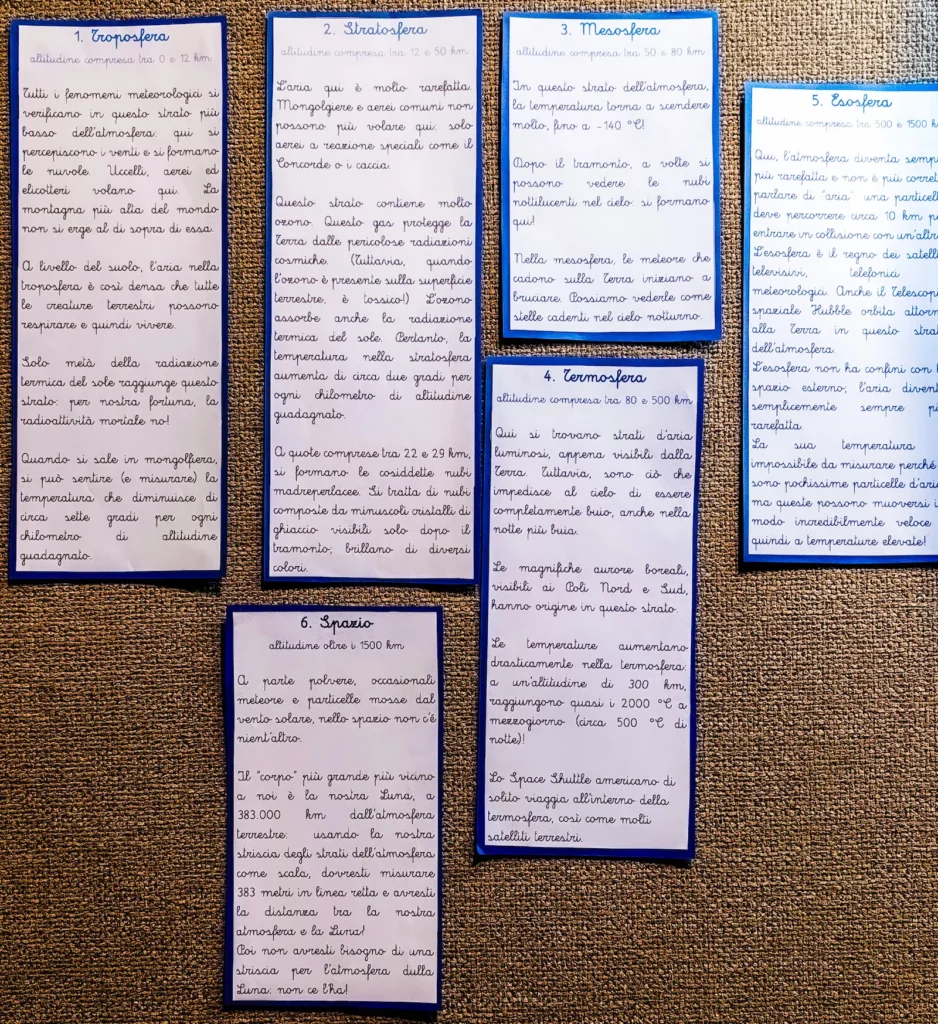 1. Troposfera
altitudine compresa tra 0 e 12 km
Tutti i fenomeni meteorologici si
verificano in questo strato più
basso dell'atmosfera: qui si
percepiscono i venti e si formano
le nuvole. Uccelli, aerei ed
elicotteri volano qui. La
montagna più alta del mondo
non si erge al di sopra di essa.
A livello del suolo, l'aria nella
troposfera è così densa che tutte
le creature terrestri possono
respirare e quindi vivere.
Solo metà della radiazione
termica del sole raggiunge questo
strato: per nostra fortuna, la
radioattività mortale no!
Quando si sale in mongolfiera,
si può sentire (e misurare) la
temperatura che diminuisce di
circa sette gradi per ogni
chilometro di altitudine
guadagnato.
2. Stratosfera
altitudine compresa tra 12 e 50 km
L'aria qui è molto rarefatta.
Mongolgiere e aerei comuni non
possono più volare qui: solo
aerei a reazione speciali come il
Concorde o i caccia.
Questo strato contiene molto
ozono. Questo gas protegge la
Terra dalle pericolose radiazioni
cosmiche. (Tuttavia, quando
l'ozono è presente sulla superficie
terrestre, è tossico!) L'ozono
assorbe anche la radiazione
termica del sole. Pertanto, la
temperatura nella stratosfera
aumenta di circa due gradi per
ogni chilometro di altitudine
guadagnato.
A quote comprese tra 22 e 29 km,
si formano le cosiddette nubi
madreperlacee. Si tratta di nubi
composte da minuscoli cristalli di
ghiaccio visibili solo dopo il
tramonto; brillano di diversi
colori.
3. Mesosfera
altitudine compresa tra 50 e 80 km
In questo strato dell'atmosfera,
la temperatura torna a scendere
molto, fino a -140 °C!
Dopo il tramonto, a volte si
possono vedere le nubi
nottilucenti nel cielo: si formano
qui!
Nella mesosfera, le meteore che
cadono sulla Terra iniziano a
bruciare. Possiamo vederle come
stelle cadenti nel cielo notturno.
4. Termosfera
altitudine compresa tra 80 e 500 km
Qui si trovano strati d'aria
luminosi, appena visibili dalla
Terra. Tuttavia, sono ciò che
impedisce al cielo di essere
completamente buio, anche nella
notte più buia.
Le magnifiche aurore boreali,
visibili ai Poli Nord e Sud,
hanno origine in questo strato.
Le temperature aumentano
drasticamente nella termosfera:
a un'altitudine di 300 km,
raggiungono quasi i 2000 °C a
mezzogiorno (circa 500 °C di
notte)!
Lo Space Shuttle americano di
solito viaggia all'interno della
termosfera, così come molti
satelliti terrestri.
5. Esosfera
altitudine compresa tra 500 e 1500 k
Qui, l'atmosfera diventa semp
più rarefatta e non è più corret
parlare di "aria": una particell
deve percorrere circa 10 km p
entrare in collisione con un'altr
L'esosfera è il regno dei satell
televisivi, telefonici
meteorologici. Anche il Telescopi
spaziale Hubble orbita attorn
alla Terra in questo strat
dell'atmosfera.
L'esosfera non ha confini con l
spazio esterno; l'aria divent
semplicemente sempre pi
rarefatta.
La sua temperatura
impossibile da misurare perché
sono pochissime particelle d'aria
ma queste possono muoversi i
modo incredibilmente veloce
quindi a temperature elevate!
6. Spazio
altitudine oltre i 1500 km
A parte polvere, occasionali
meteore e particelle mosse dal
vento solare, nello spazio non c'è
nient'altro.
Il "corpo" più grande più vicino
a noi è la nostra Luna, a
383.000 km dall'atmosfera
terrestre: usando la nostra
striscia degli strati dell'atmosfera
come scala, dovresti misurare
383 metri in linea retta e avresti
la distanza tra la nostra
atmosfera e la Luna!
Poi non avresti bisogno di una
striscia per l'atmosfera dulla
Luna: non ce l'ha!